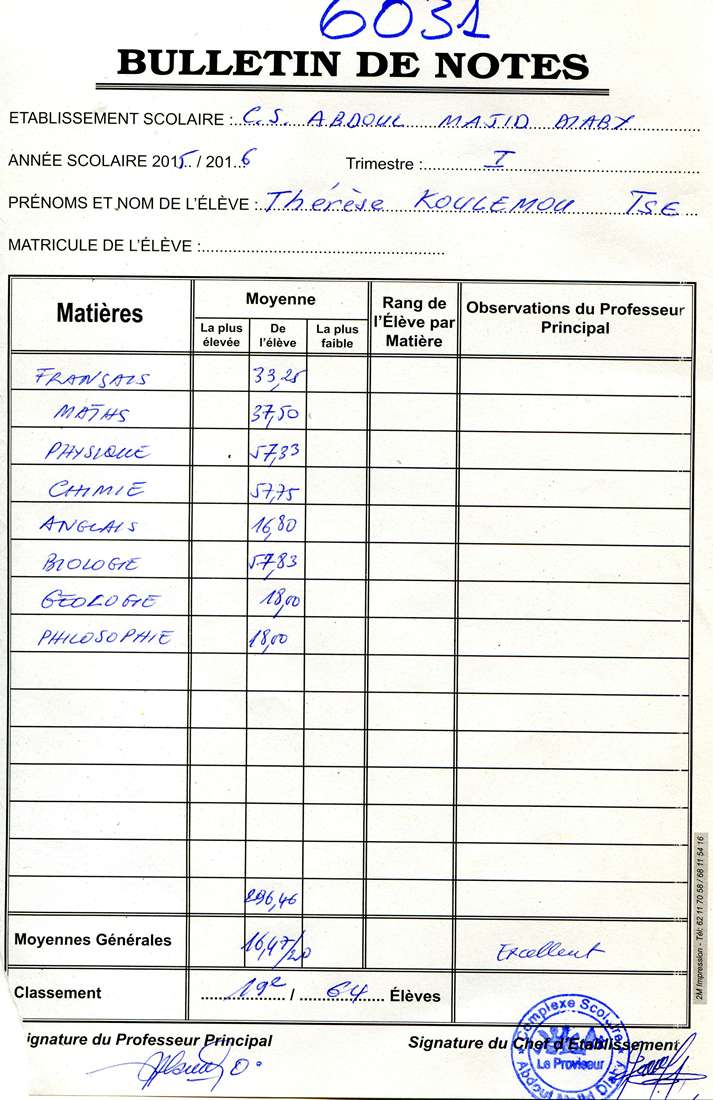 6031
BULLETIN DE NOTES
ETABLISSEMENT SCOLAIRE : C.S. ABDOUL MAJID DIABY
ANNÉE SCOLAIRE 2015 / 2016 Trimestre : I
PRÉNOMS ET NOM DE L'ÉLÈVE : Thérèse KOULEMOU TSE
MATRICULE DE L'ÉLÈVE :
Matières Moyenne Rang de l'Élève par Matière Observations du Professeur Principal
La plus élevée De l'élève La plus faible
FRANÇAIS 33,25
MATHS 37,50
PHYSIQUE 57,33
CHIMIE 57,75
ANGLAIS 16,80
BIOLOGIE 57,83
GEOLOGIE 18,00
PHILOSOPHIE 18,00
296,46
Moyennes Générales 16,47/20 Excellent
Classement 19e / 64 Élèves
ignature du Professeur Principal Signature du Chef d'Etablissement
Complexe Scolaire
Le Proviseur
Abdoul Majid Diaby
2M Impression - Tél: 62 11 70 58 / 68 11 54 16